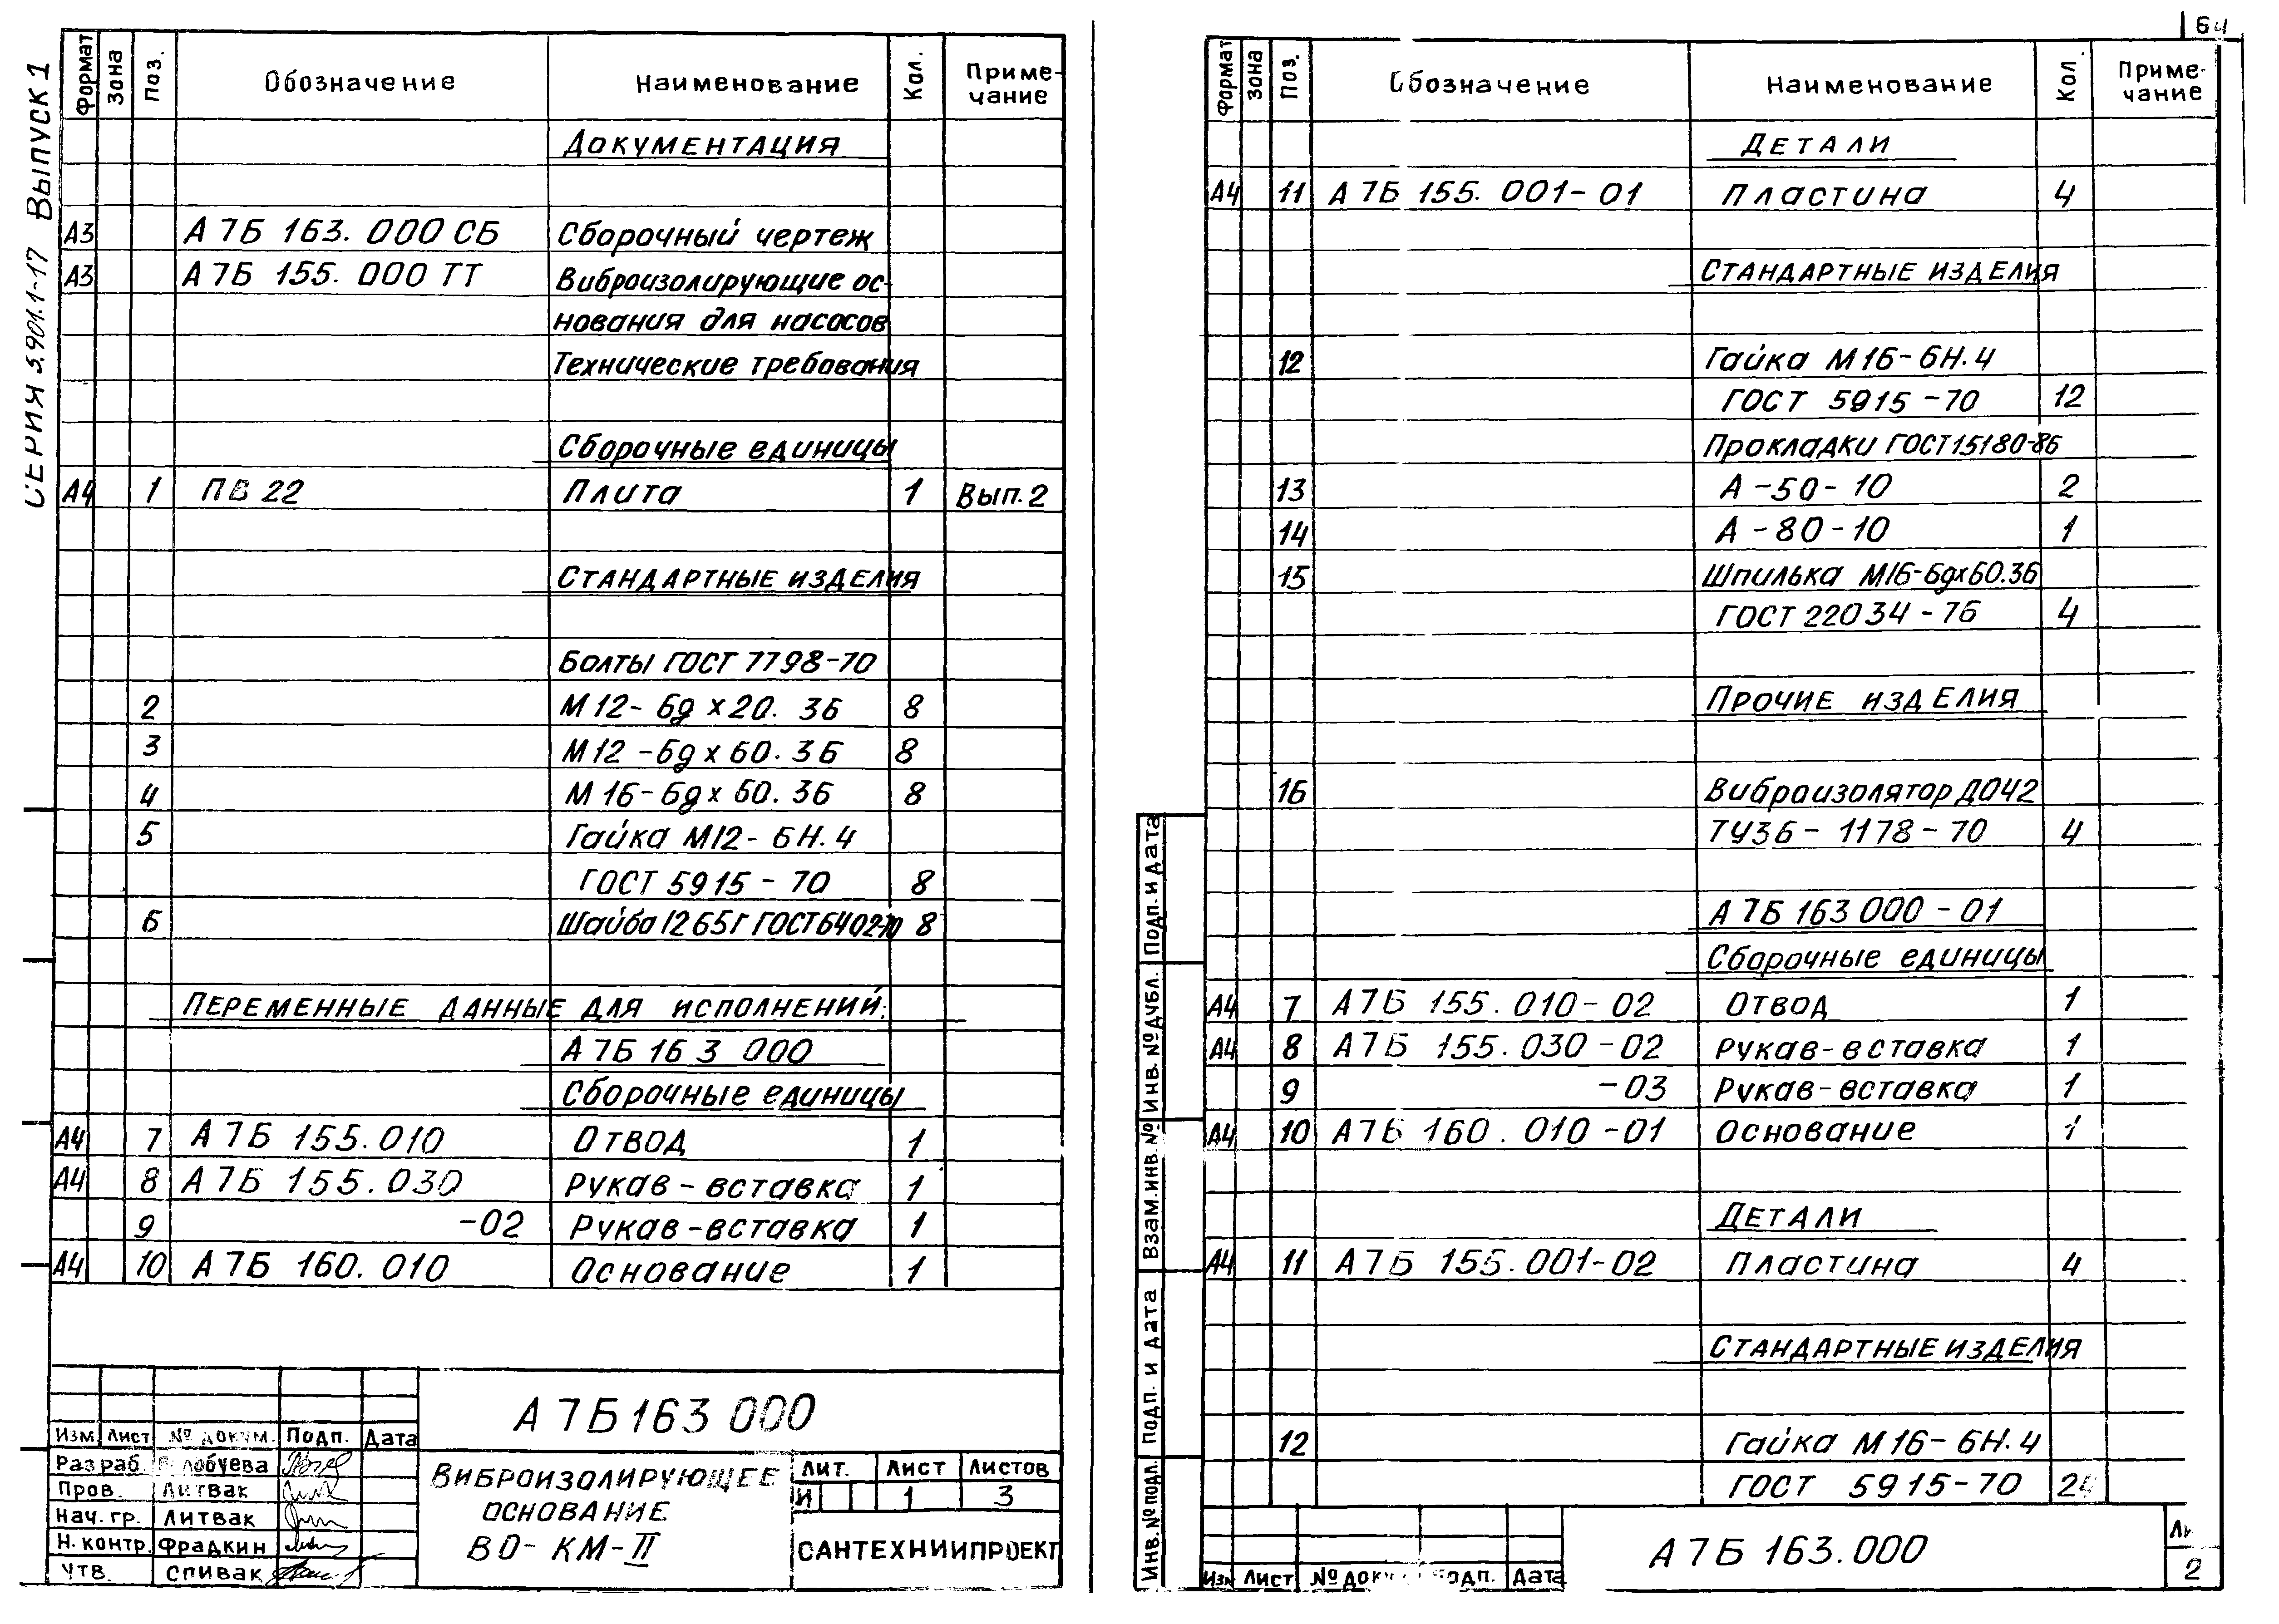 СЕРИЯ 5.901.1-17 Выпуск 1
Формат Зона Поз. Обозначение Наименование Кол. Приме-
чание
Документация
А3 А7Б 163.000 СБ Сборочный чертеж
А3 А7Б 155.000 ТТ Виброизолирующие ос-
нования для насосов
Технические требования
Сборочные единицы
А4 1 ПВ 22 Плита 1 Вып.2
Стандартные изделия
Болты ГОСТ 7798-70
2 М12-6gх20.36 8
3 М12-6gх60.36 8
4 М16-6gх60.36 8
5 Гайка М12-6Н.4
ГОСТ 5915-70 8
6 Шайба 12 65Г ГОСТ 6402-70 8
Переменные данные для исполнений:
А7Б 163 000
Сборочные единицы
А4 7 А7Б 155.010 Отвод 1
А4 8 А7Б 155.030 Рукав-вставка 1
9 -02 Рукав-вставка 1
А4 10 А7Б 160.010 Основание 1
А7Б163 000
Изм Лист № докум. Подп. Дата
Разраб.
Пров. Литвак
Нач. гр. Литвак
Н. контр. Фрадкин
Утв. Спивак
Виброизолирующее
основание
ВО-КМ-II
Лит. Лист Листов
И 1 3
САНТЕХНИИПРОЕКТ
64
Формат Зона Поз. Обозначение Наименование Кол. Приме-
чание
Детали
А4 11 А7Б 155.001-01 Пластина 4
Стандартные изделия
12 Гайка М16-6Н.4
ГОСТ 5915-70 12
Прокладки ГОСТ 15180-86
13 А-50-10 2
14 А-80-10 1
15 Шпилька М16-6gх60.36
ГОСТ 22034-76 4
Прочие изделия
16 Виброизолятор ДО42
ТУ36-1178-70 4
А7Б 163 000-01
Сборочные единицы
А4 7 А7Б 155.010-02 Отвод 1
А4 8 А7Б 155.030-02 Рукав-вставка 1
9 -03 Рукав-вставка 1
А4 10 А7Б 160.010-01 Основание 1
Детали
А4 11 А7Б 155.001-02 Пластина 4
Стандартные изделия
12 Гайка М16-6Н.4
ГОСТ 5915-70
Инв. № подл. Подп. и дата Взам. инв. № Инв. № дубл. Подп. и дата
Изм Лист № докум Подп. Дата
А7Б 163.000
2